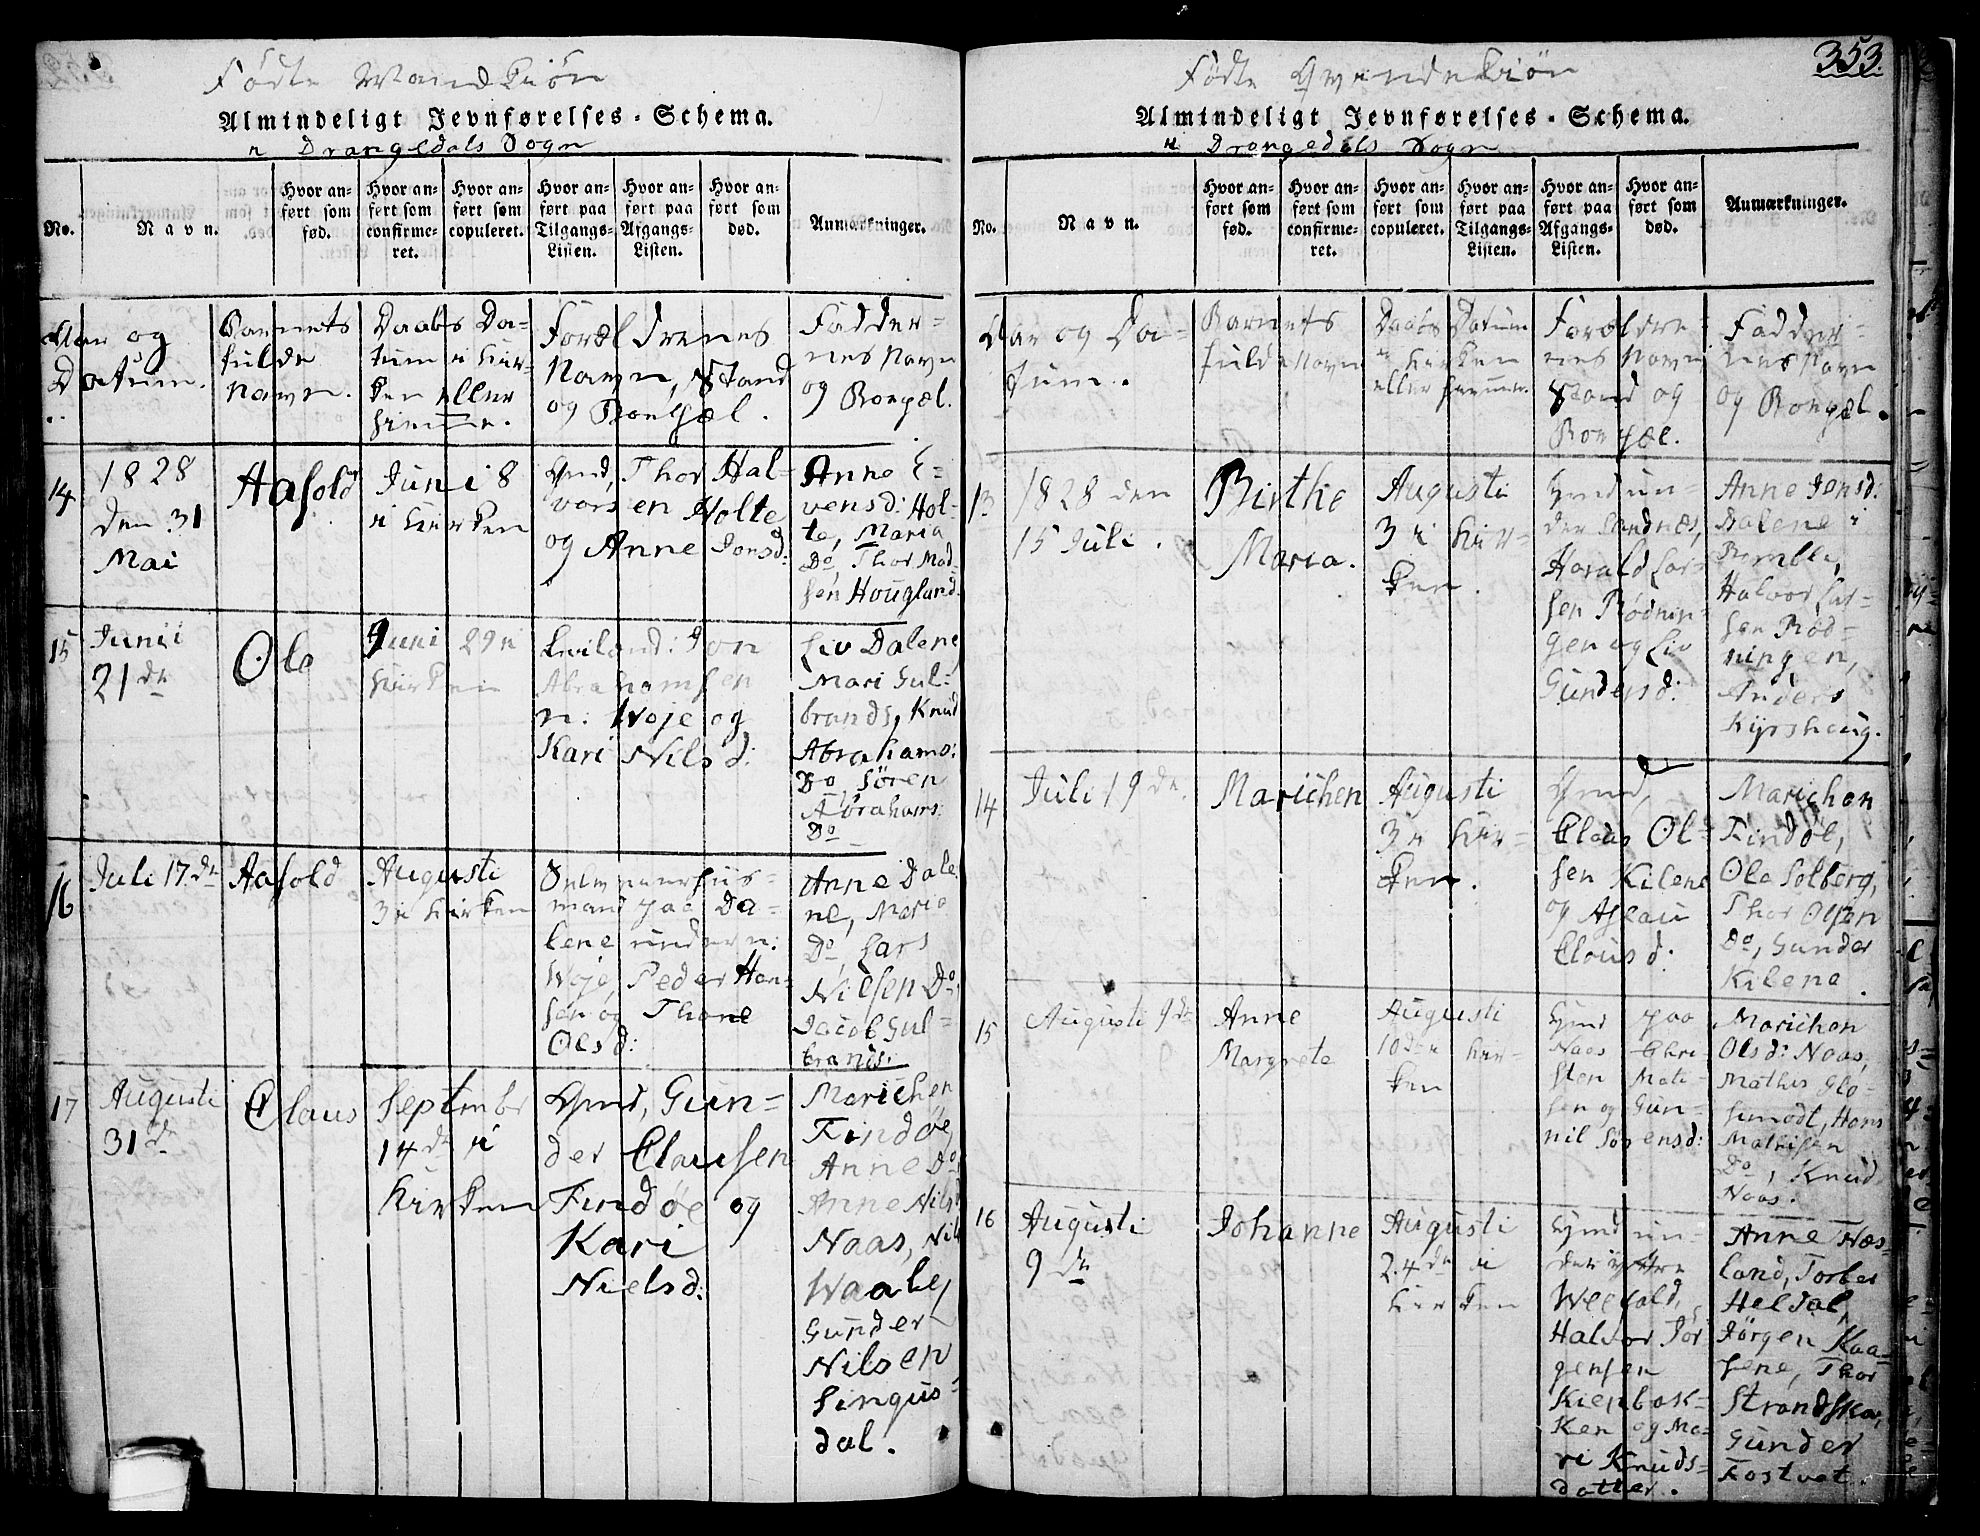 Fødte Mandkiön
Almindeligt Jevnførelses-Schema.
i Drangedals Sogn
No.
Navn.
Hvor anført som fød.
Hvor anført som confirmeret.
Hvor anført som copuleret.
Hvor anført paa Tilgangs-Listen.
Hvor anført paa Afgangs-Listen.
Hvor anført som død.
Anmærkninger.
Aar og
Datum.
Barnets
fulde
Navn.
Daabs Da-
tum i Kir-
ken eller
hiemme.
Forældrenes
Navn, Stand
og Bopæl.
Fadder-
nes Navn
og Bopæl.
14
1828
den 31
Mai
Aasold
Juni 8
i Kirken
Gmd, Thor Hal-
vorsen Holte
og Anne Jonsd:
Anne E-
vensd: Hol-
te, Maria
Do, Thor Mad-
sen Hougland.
15
Junii
21de
Ole
Juni 29 i
Kirken
Leilænd: Jon
Abrahamsen
n: Woje og
Kari Nilsd:
Liv Dalene,
Mari Gul-
brands, Knud
Abrahams:
Do, Sören
Abrahams:
Do
16
Juli 17de
Aasold
Augusti
3 i Kirken
mand paa Da-
lene under n:
Woje, Peder Han-
sen og Thone
Olsd:
Anne Dale-
ne, Maria
Do, Lars
Nielsen Do,
Jacob Gul-
brands:
17
Augusti
31de
Claus
Septembr
14de i
Kirken
Gmd, Gun-
der Clausen
Findøe og
Kari
Nielsd:
Marichen
Findøe,
Anne Do,
Anne Nilsd
Naas, Nils
Waaley
Gunder
Nilsen
Singus-
dal.
353.
Fødte Qvindekiön
Almindeligt Jevnførelses-Schema.
i Drangedals Sogn
No.
Navn.
Hvor anført som fød.
Hvor anført som confirmeret.
Hvor anført som copuleret.
Hvor anført paa Tilgangs-Listen.
Hvor anført paa Afgangs-Listen.
Hvor anført som død.
Anmærkninger.
Aar og Da-
tum.
Barnets
fulde Navn
Daabs Datum
i Kirken
eller hiemme.
Forældre-
nes Navn
Stand og
Bopæl.
Fadder-
nes Navn
og Bopæl.
13
1828 den
15 Juli.
Birthe
Maria.
Augusti
3 i Kir-
ken.
Gmd un-
der Sandnæs,
Harald Lar-
sen Rødnin-
gen og Liv
Gundersd:
Anne Jensd:
Dalene i
Bamble,
Halvor Lar-
sen Rød-
ningen,
Anders
Kyrshaug.
14
Juli 19de.
Marichen
Augusti
3 i Kir-
ken.
Gmd,
Claus Ol-
sen Kilene
og Aslau
Clausd:
Marichen
Findöe,
Ole Solberg,
Thor Olsen
Do, Gunder
Kilene.
15
Augusti 9de
Anne
Margrete
Augusti
10de i Kir-
ken
Gmd paa
Naas Chri-
sten Mati-
sen og Gun-
nil Sörensd:
Marichen
Olsd: Naas,
Mathis Glo-
smodt, Hans
Mathisen
Do, Knud
Naas.
16
Augusti
9de
Johanne
Augusti
24de i
Kirken
Gmd un-
der yttre
Weefald,
Halvor Jör-
gensen
Kienbak-
ken og Ma-
ri Knuds-
datter.
Anne Næs-
land, Torber
Heldal,
Jörgen Kaa-
sene, Thor
Strandskar,
Gunder
Fostvet.